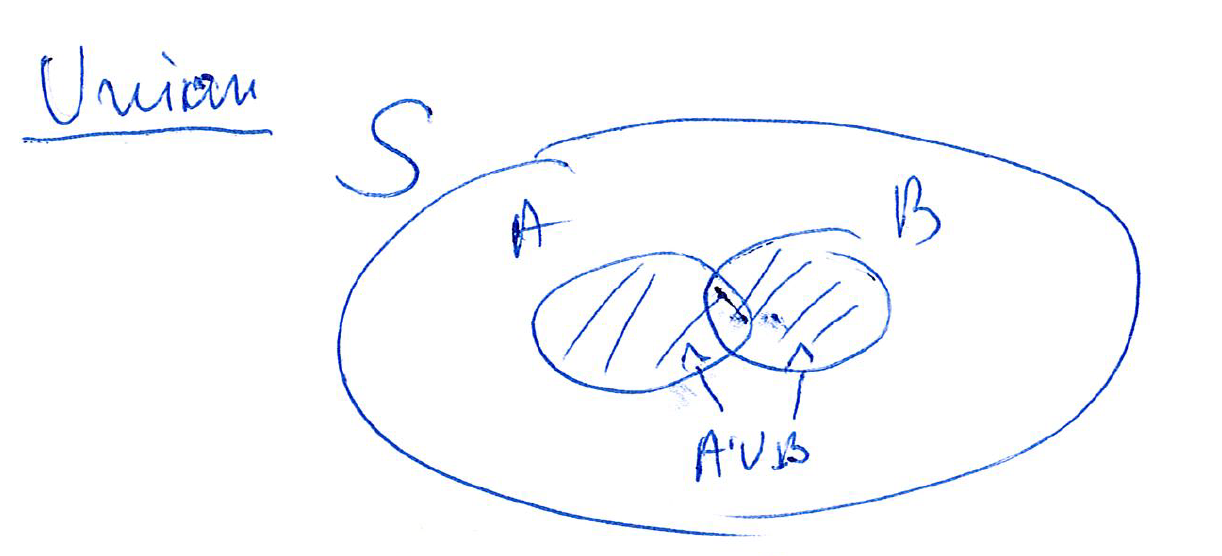 Union
S
A
B
A∪B